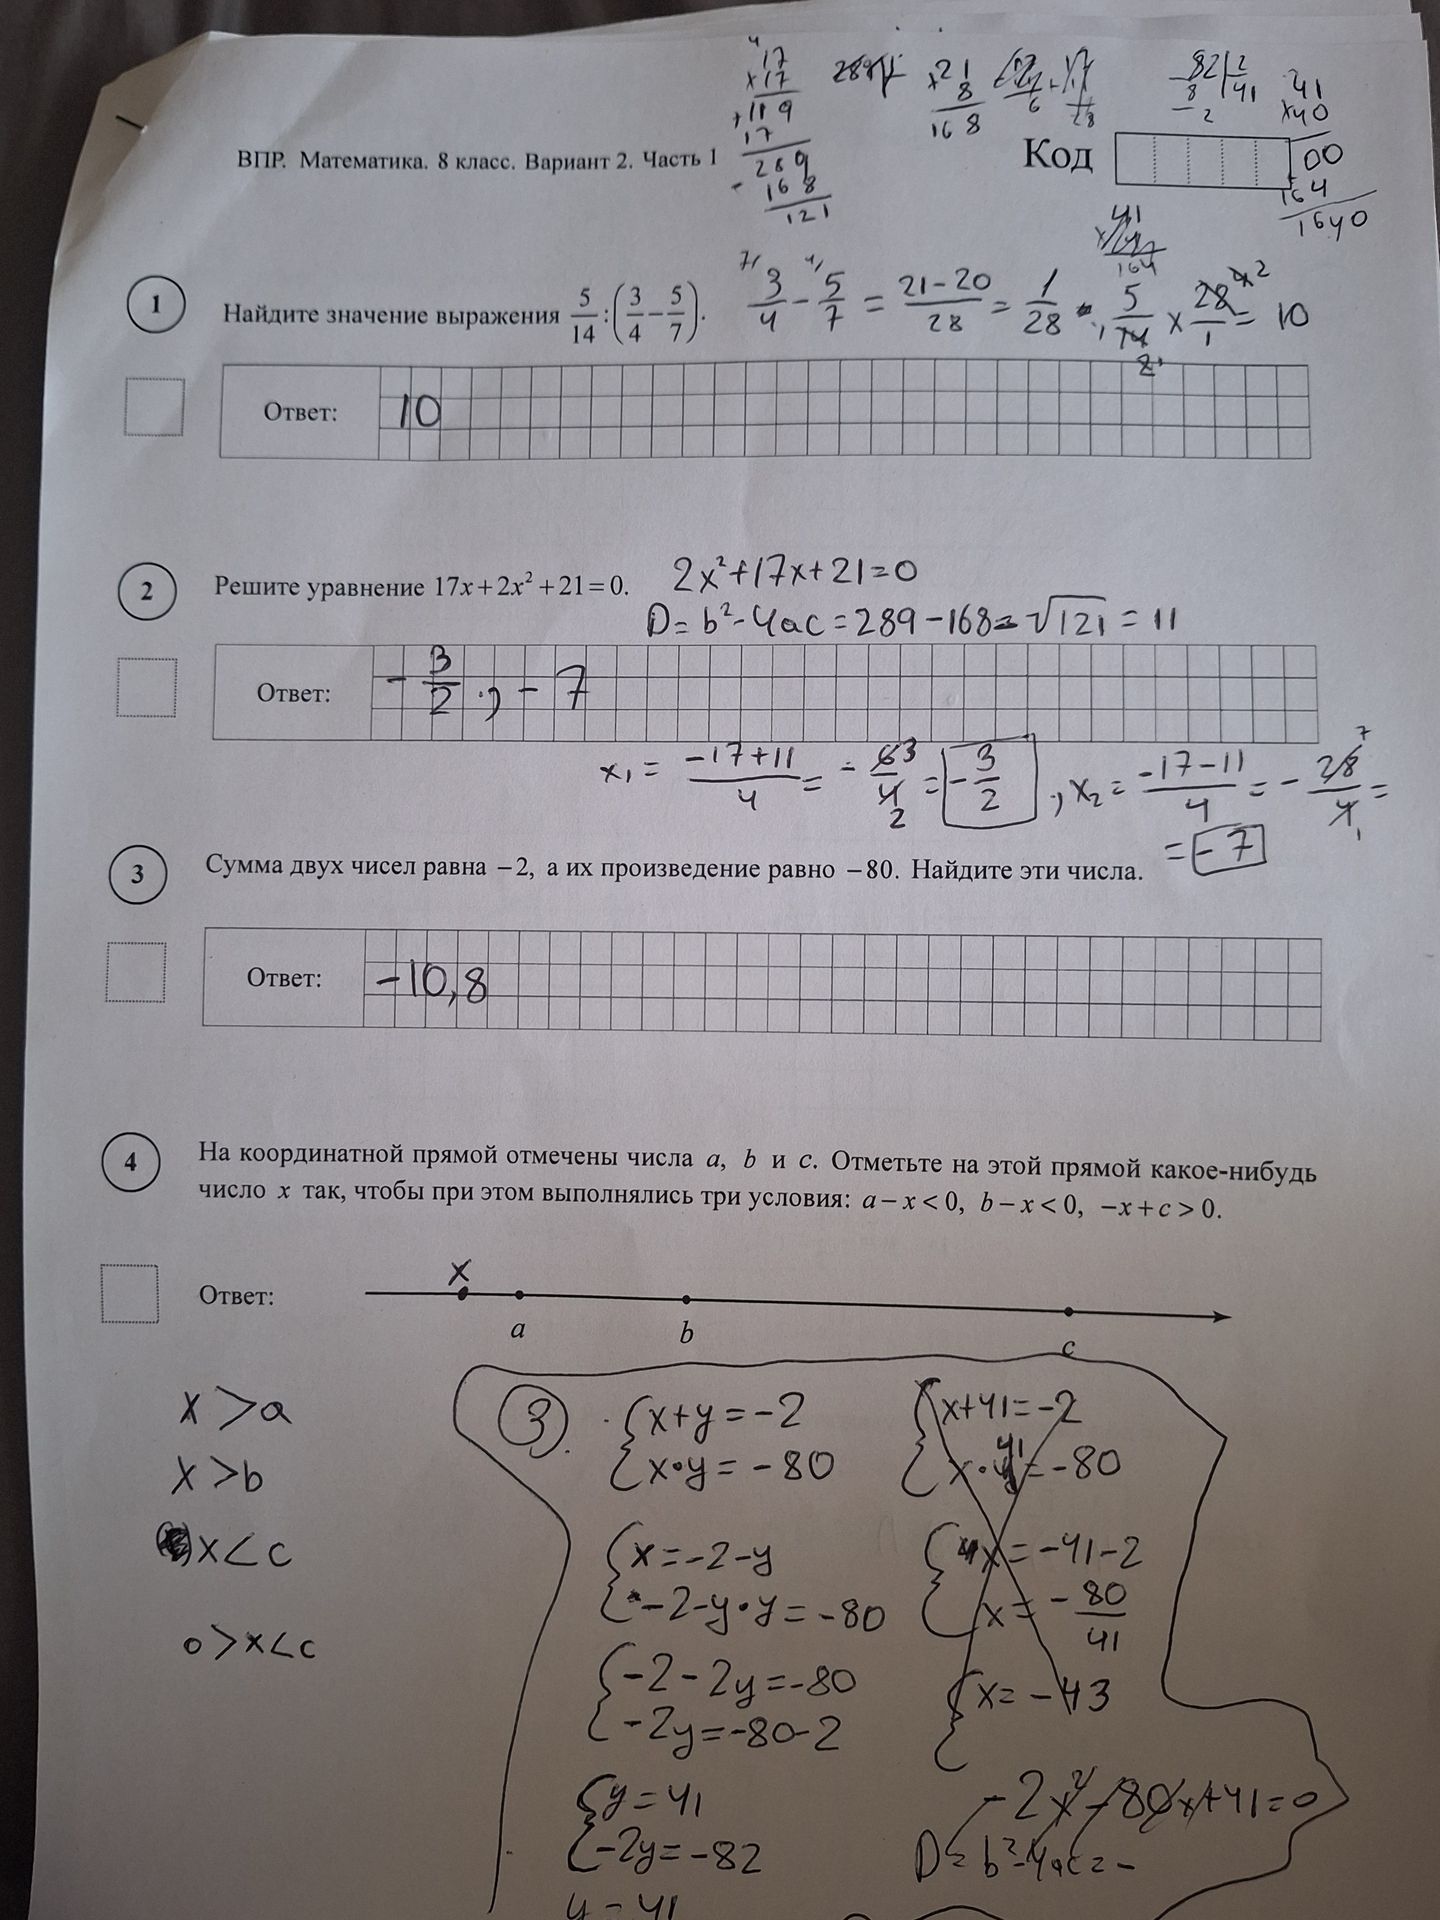 17
×17
+119
17
289
- 168
121
×21
8
168
82|2
8 41
2
41
×40
00
164
1640
ВПР. Математика. 8 класс. Вариант 2. Часть 1
Код
×41
164
1 Найдите значение выражения 5/14 : (3/4 − 5/7). 3/4 − 5/7 = 21−20/28 = 1/28 5/14 × 28/1 = 10
Ответ: 10
2 Решите уравнение 17x + 2x² + 21 = 0. 2x²+17x+21=0
D= b²-4ac = 289-168= √121 = 11
Ответ: - 3/2 ; - 7
x₁ = -17+11/4 = - 6/4 = - 3/2 ; x₂ = -17-11/4 = - 28/4 =
= -7
3 Сумма двух чисел равна −2, а их произведение равно −80. Найдите эти числа.
Ответ: -10,8
4 На координатной прямой отмечены числа a, b и c. Отметьте на этой прямой какое-нибудь
число x так, чтобы при этом выполнялись три условия: a − x < 0, b − x < 0, −x + c > 0.
x
Ответ:
a b c
x >a
x >b
x<c
0 >x<c
3.
{x+y=-2
x·y=-80
{x=-2-y
-2-y·y=-80
{-2-2y=-80
-2y=-80-2
{y=41
-2y=-82
y=41
{x+41=-2
x·41=-80
{x=-41-2
x=-80/41
{x=-43
-2x²-80x+41=0
D= b²-4ac=-